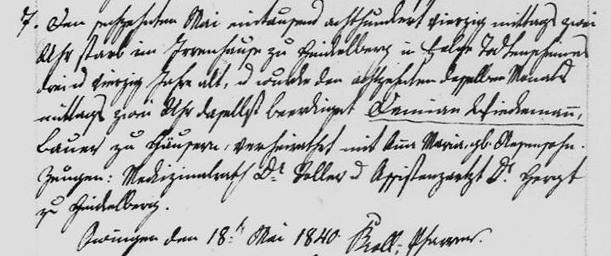 7. Den sechzehnten Mai eintausend achthundert vierzig mittags zwei
Uhr starb im Irrenhause zu Heidelberg in Folge
drei u vierzig Jahr alt, u wurde den achtzehnten desselben Monats
mittags zwei Uhr daselbst beerdiget Damian Wiedemann,
Bauer zu Häusern, verheirathet mit Anna Maria, gb.
Zeugen: Medizinalrath Dr. Roller u Assistenzarzt Dr. Hergt
zu Heidelberg.
den 18.ten Mai 1840. Pfarrer.